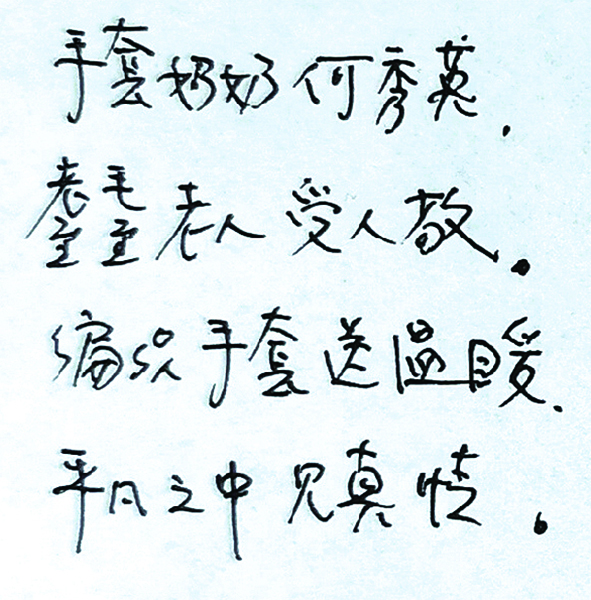 手套奶奶何秀英,
耋耄老人受人敬。
编织手套送温暖,
平凡之中见真情。